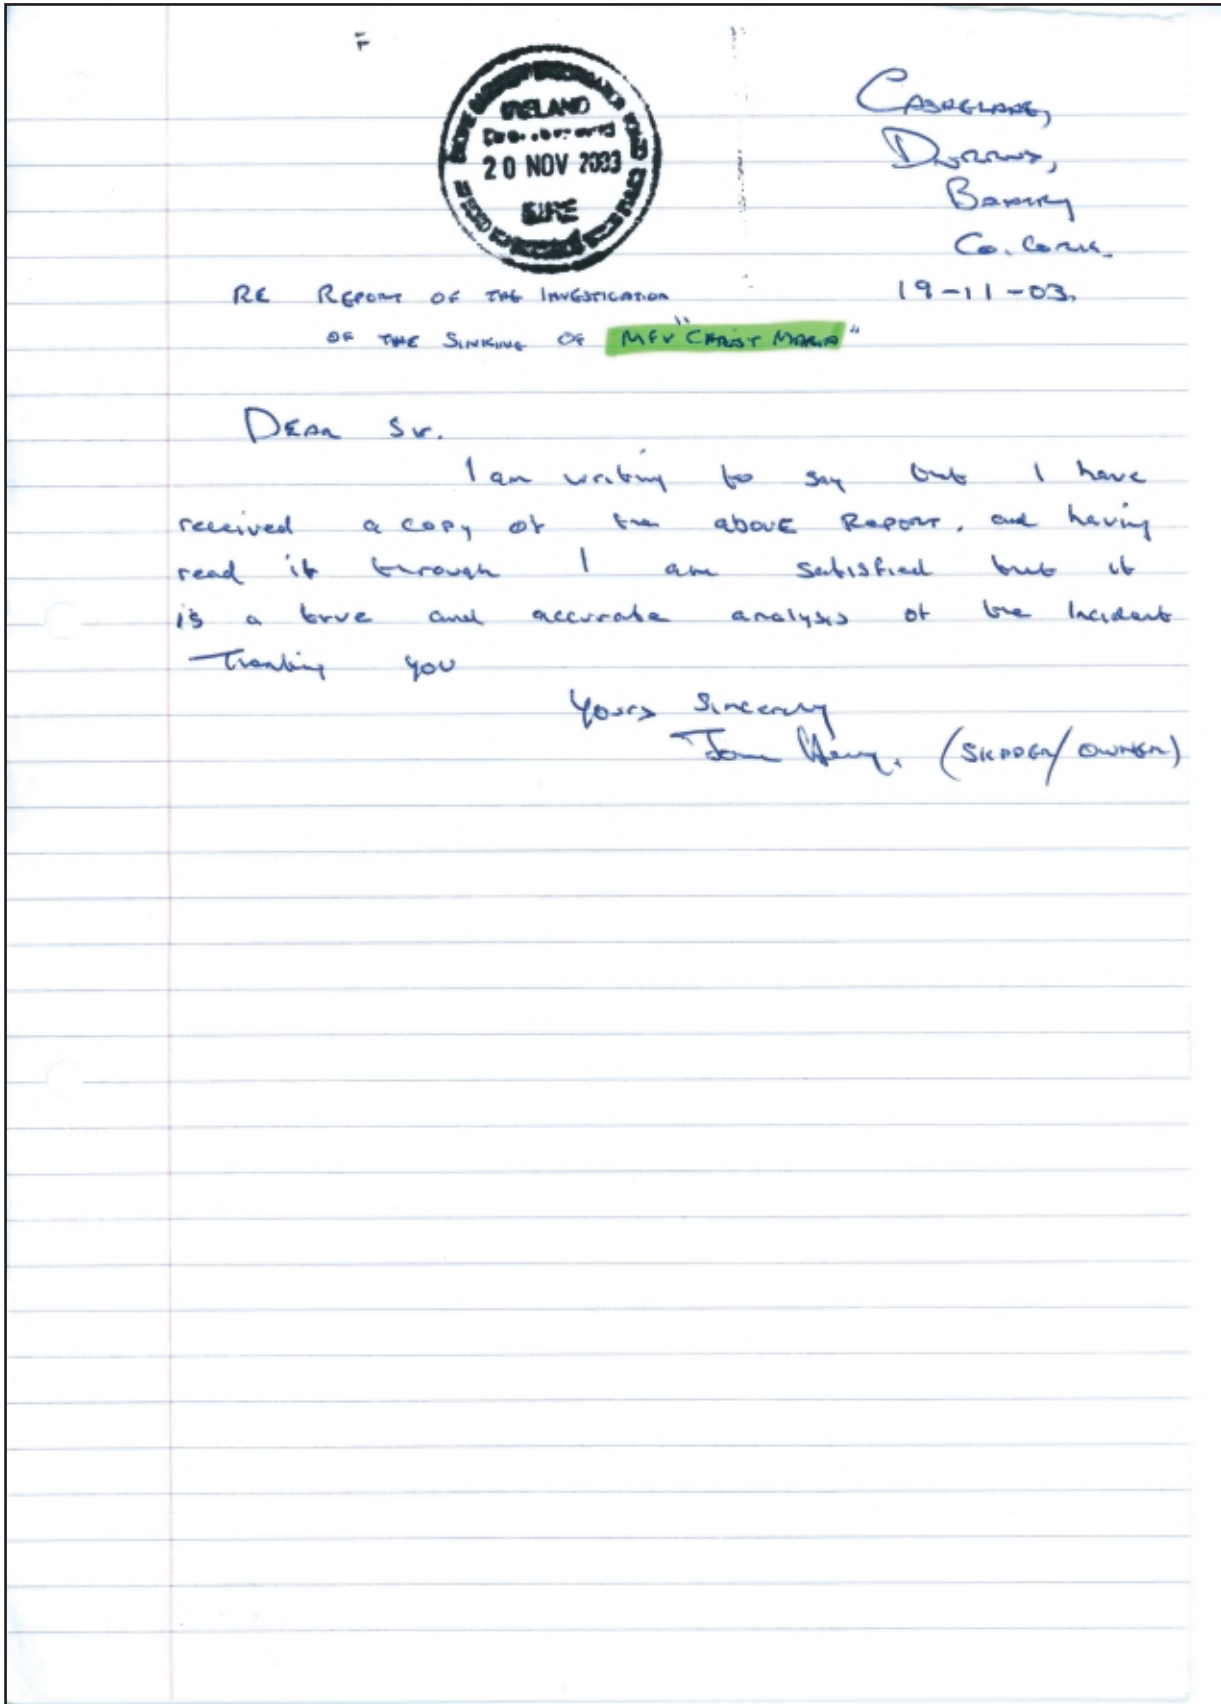 IRELAND
20 NOV 2003
EIRE
Durrus,
Bantry
Co. Cork.
19-11-03.
RE REPORT OF THE INVESTIGATION
OF THE SINKING OF MFV "CHRIST MARIA"
DEAR Sir.
I am writing to say that I have
received a copy of the above REPORT, and having
read it through I am satisfied that it
is a true and accurate analysis of the Incident
Thanking you
Yours Sincerely
(SKIPPER/OWNER)